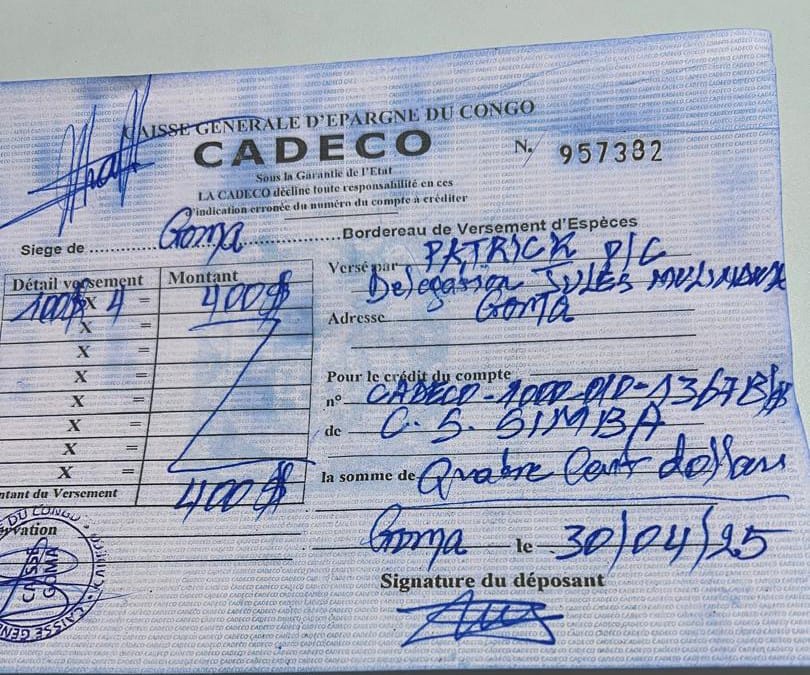 CAISSE GENERALE D'EPARGNE DU CONGO
CADECO
N. 957382
Sous la Garantie de l'Etat
LA CADECO décline toute responsabilité en ces
d'indication erronée du numéro du compte à créditer
Siege de Goma
Bordereau de Versement d'Espèces
Détail versement Montant
100$ X 4 = 400$
X =
X =
X =
X =
X =
X =
X =
ntant du Versement 400$
Versé par PATRICK P/C
Délégation JULES
Adresse Goma
Pour le crédit du compte
n° CADECO-1000-
de C. S. SIMBA
la somme de Quatre Cent dollars
Goma le 30/04/25
Signature du déposant
rvation
CAISSE
GOMA